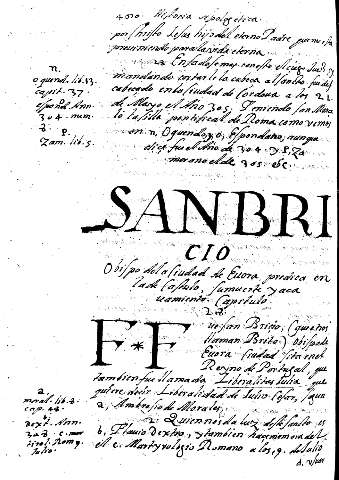 400 Historia Apolgetica
por christo Jesus hijo del eterno Padre
para la vida eterna.
2. Enfadose mucho con esto el juez, y
mandando cortar la cabeça al santo fue des
cabeçado en la ciudad de Cordova a los 22
de Março el Año 305. teniendo san Marce
lo la silla pontifical de Roma como vemos
en n, Oquendo, o, Espondano, aunque
dice fue el Año de 304. y P, Za
morano el de 305. &c.
n,
oquend. lib. 13.
capit. 37.
españd. Ann.
304. num.
8. P.
Zam. lib. 5.
SAN BRI
CIO
Obispo de la Ciudad de Euora predica en
la de Castulo, su muerte y aca
vamiento. Capitulo.
28.
FUE san Brizio, (que otros
llaman Brito) obispo de
Euora Ciudad
Reyno de Portugal, que
tambien fue llamada, Liberalitas Iulia, que
quiere decir, Liberalidad de Iulio Cesar, segun
a, Ambrosio de Morales.
2. Quien nos da luz deste santo es
b, Flavio Dextro, y tambien hace memoria del
el c, Martyrologio Romano a los 9. de Iulio
a.
moral. lib. 9.
cap. 48.
Dext. Ann.
308. c. mar
tirol. Rom. 9
Iulio.